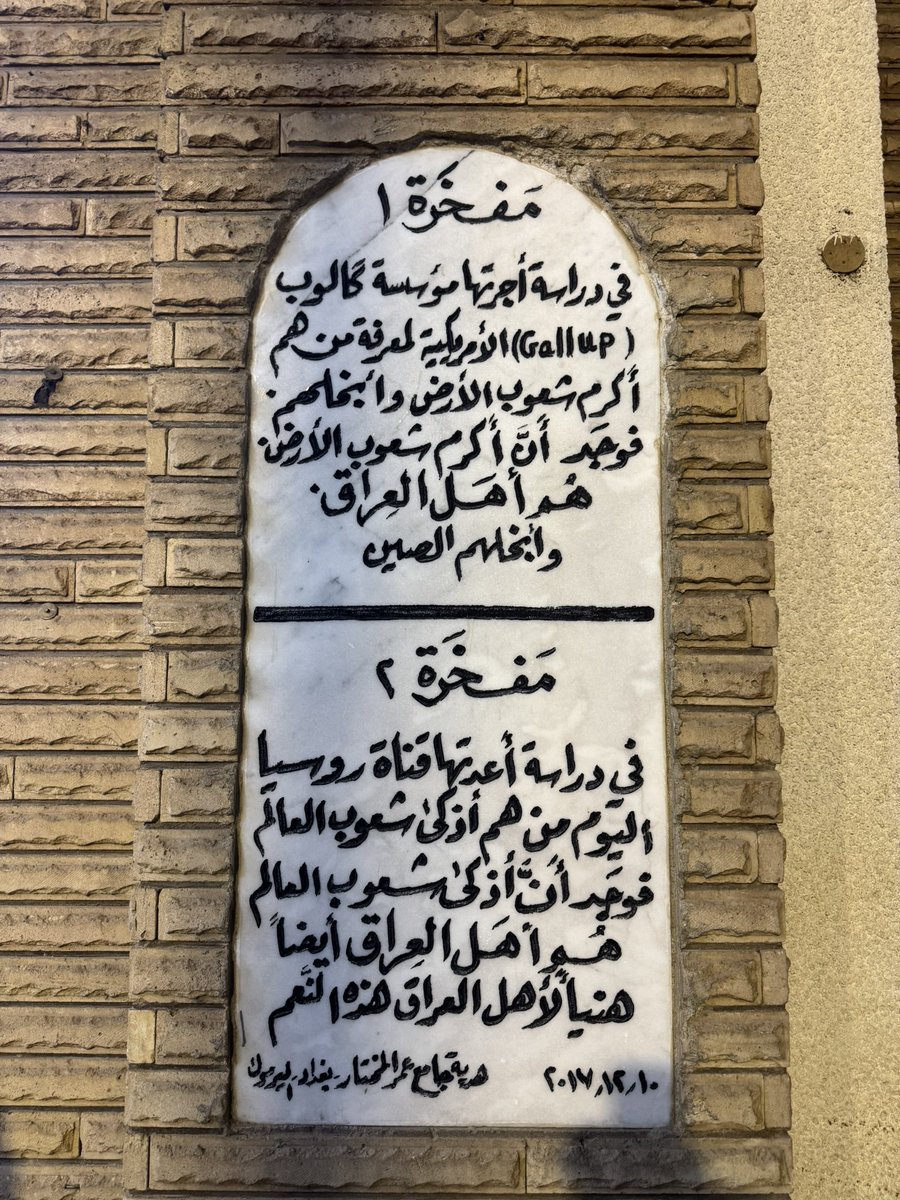 مَفخَرَة ١
في دراسة أجرتها مؤسسة گالوب
(Gallup) الأمريكية لمعرفة من هم
أكرم شعوب الأرض وأبخلهم.
فوجَد أنَّ أكرم شعوب الأرض.
هُم أهَل العِراق.
وأبخلهم الصين
مَفخَرَة ٢
في دراسة أعدتها قناة روسيا
اليَوم من هم أذكىٰ شعوب العالم
فوجَد أنَّ أذكىٰ شعوب العالم
هُم أهَل العِراق أيضاً
هنيأً لأهل العراق هذه النَّعم
١٠/١٢/٢٠١٧ هدية جامع عمر المختار - بغداد - اليرموك